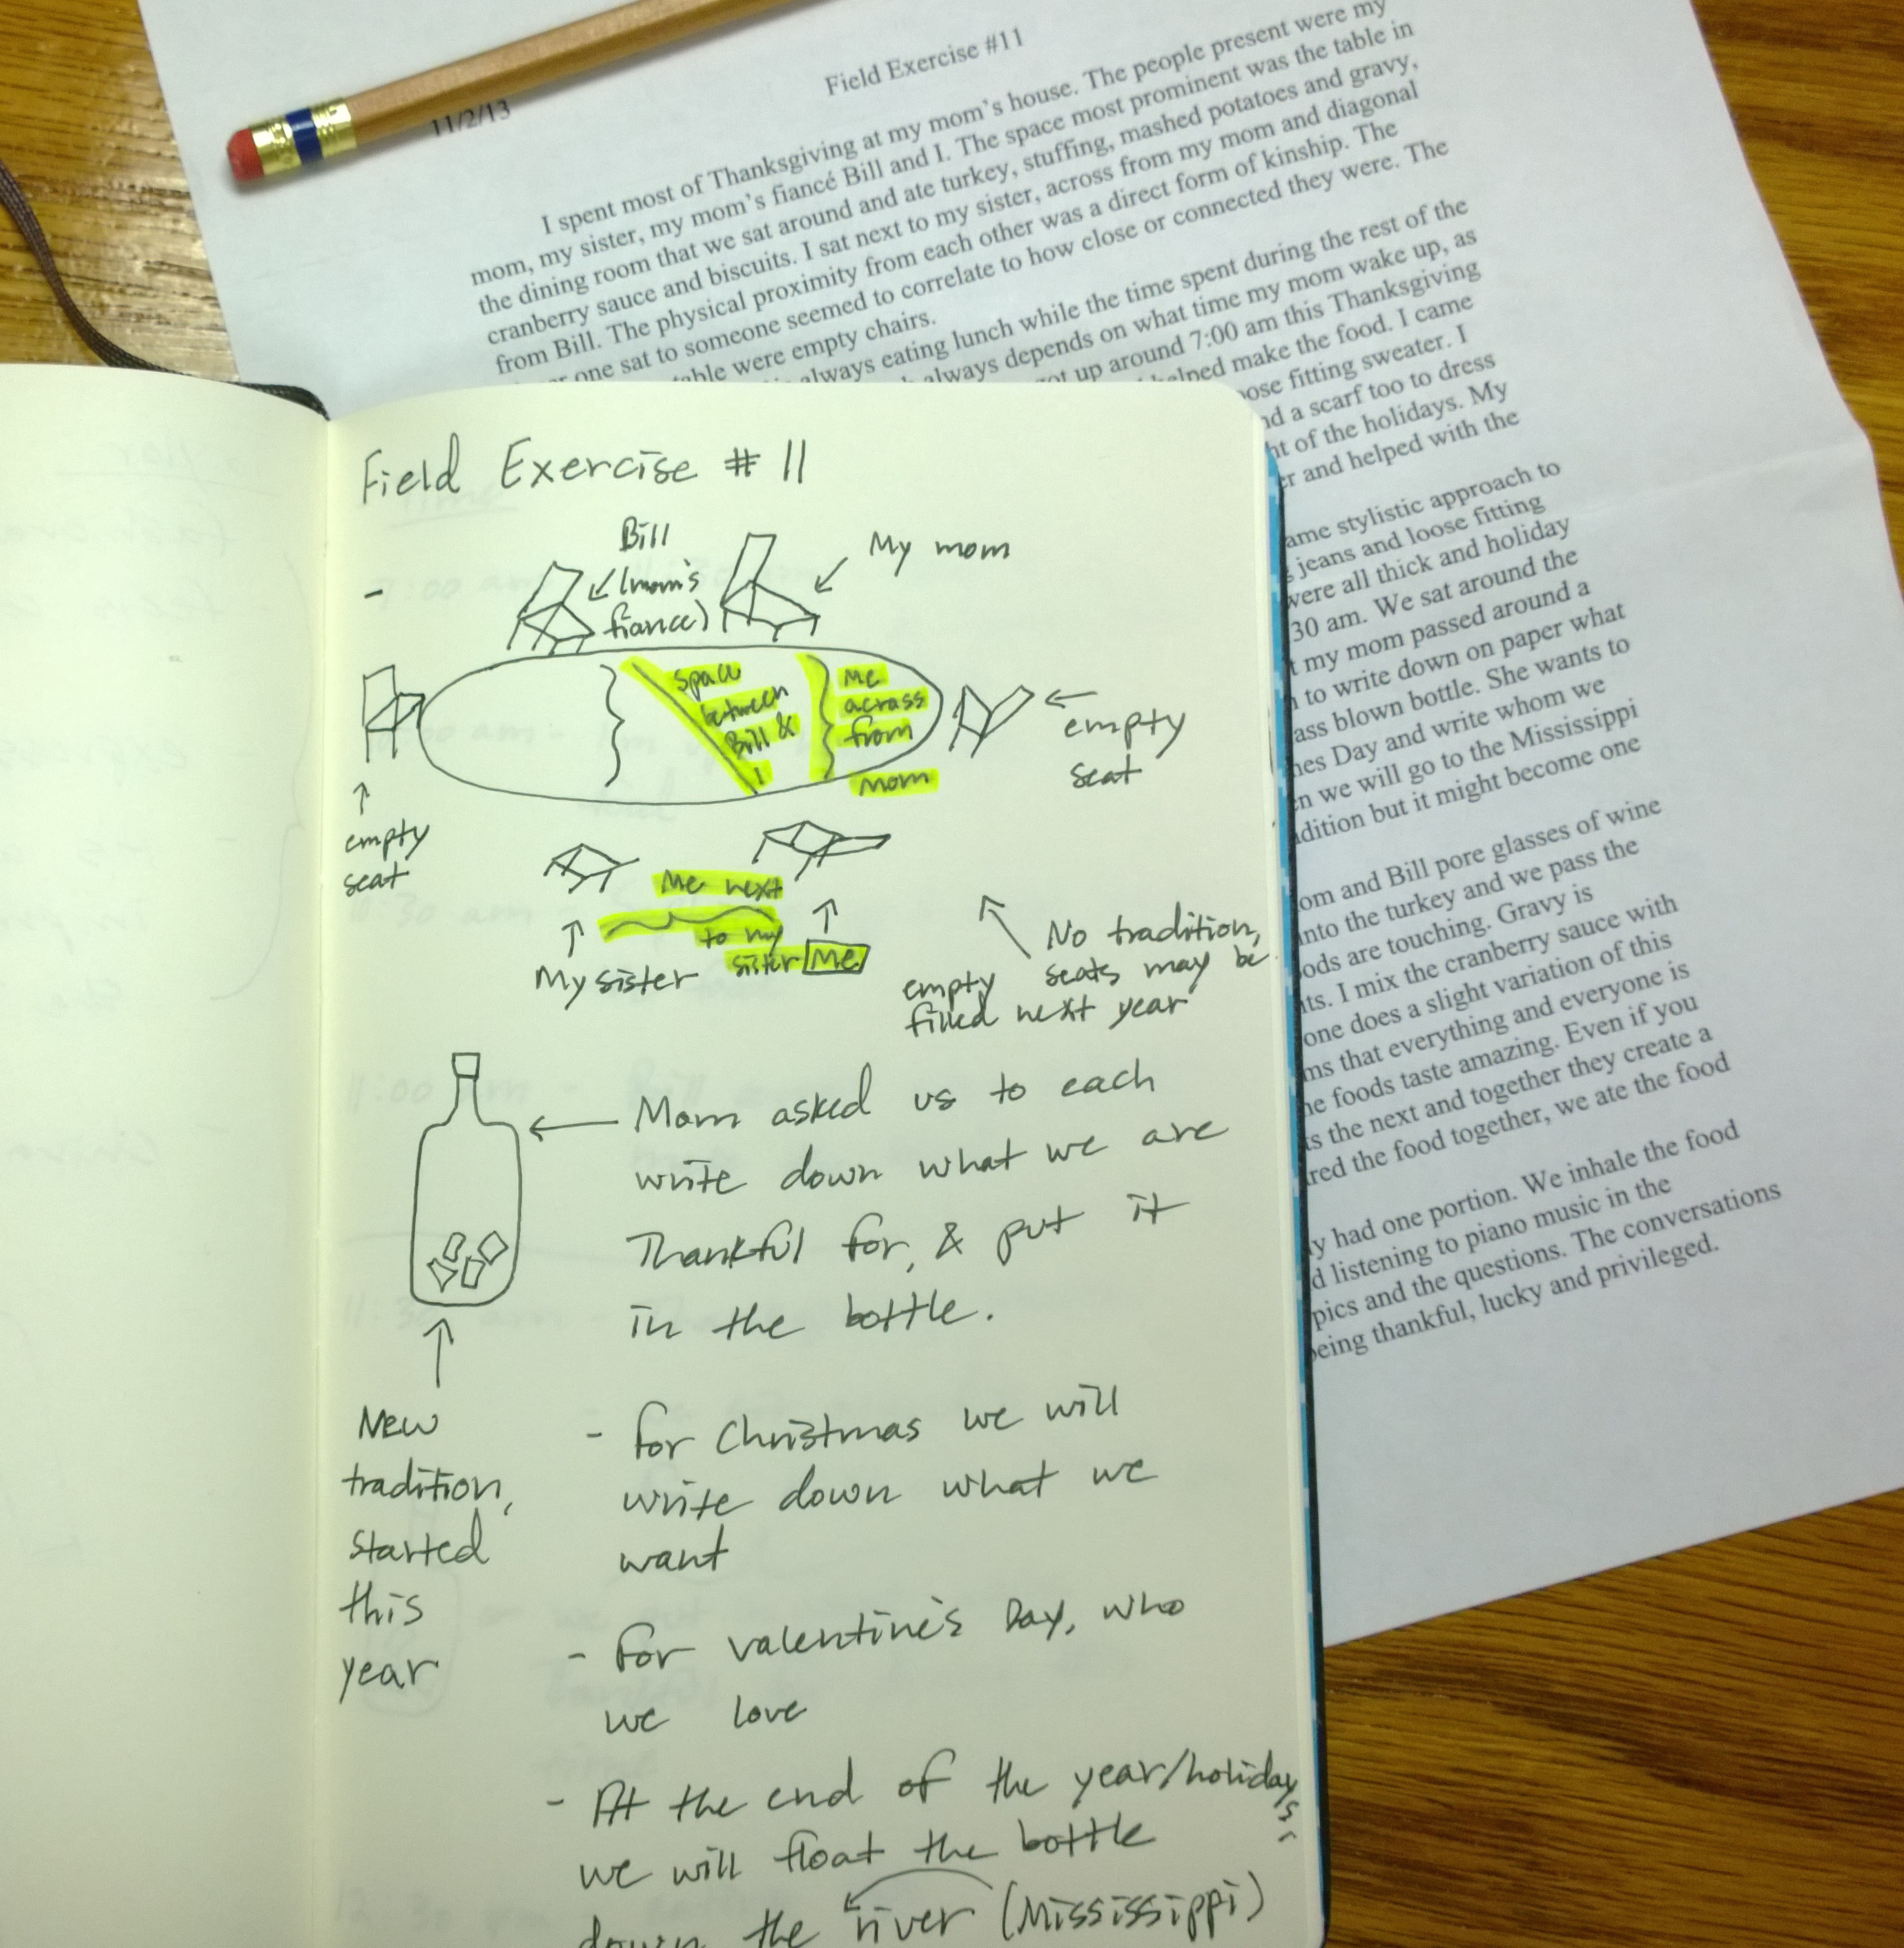 Field Exercise #11
11/2/13
I spent most of Thanksgiving at my mom's house. The people present were my
mom, my sister, my mom's fiancé Bill and I. The space most prominent was the table in
the dining room that we sat around and ate turkey, stuffing, mashed potatoes and gravy,
cranberry sauce and biscuits. I sat next to my sister, across from my mom and diagonal
from Bill. The physical proximity from each other was a direct form of kinship. The
one sat to someone seemed to correlate to how close or connected they were. The
were empty chairs.
always eating lunch while the time spent during the rest of the
always depends on what time my mom wake up, as
up around 7:00 am this Thanksgiving
helped make the food. I came
fitting sweater. I
a scarf too to dress
of the holidays. My
and helped with the
stylistic approach to
jeans and loose fitting
were all thick and holiday
30 am. We sat around the
my mom passed around a
to write down on paper what
blown bottle. She wants to
Day and write whom we
we will go to the Mississippi
but it might become one
and Bill pore glasses of wine
into the turkey and we pass the
are touching. Gravy is
I mix the cranberry sauce with
one does a slight variation of this
that everything and everyone is
foods taste amazing. Even if you
the next and together they create a
the food together, we ate the food
had one portion. We inhale the food
listening to piano music in the
and the questions. The conversations
being thankful, lucky and privileged.
Field Exercise # 11
-
Bill
(mom's
fiance)
My mom
Space
between
Bill &
I
Me
across
from
mom
empty
seat
empty
seat
Me next
to my
sister
Me
My sister
No tradition,
empty seats may be
filled next year
Mom asked us to each
write down what we are
Thankful for, & put it
in the bottle.
New
tradition,
started
this
year
- for Christmas we will
write down what we
want
- for valentine's Day, who
we love
- At the end of the year/holidays,
we will float the bottle
down the river (Mississippi)